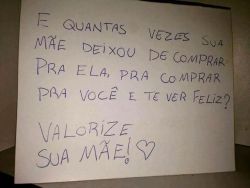 E QUANTAS VEZES SUA
MÃE DEIXOU DE COMPRAR
PRA ELA, PRA COMPRAR
PRA VOCÊ E TE VER FELIZ?
VALORIZE
SUA MÃE! ♡